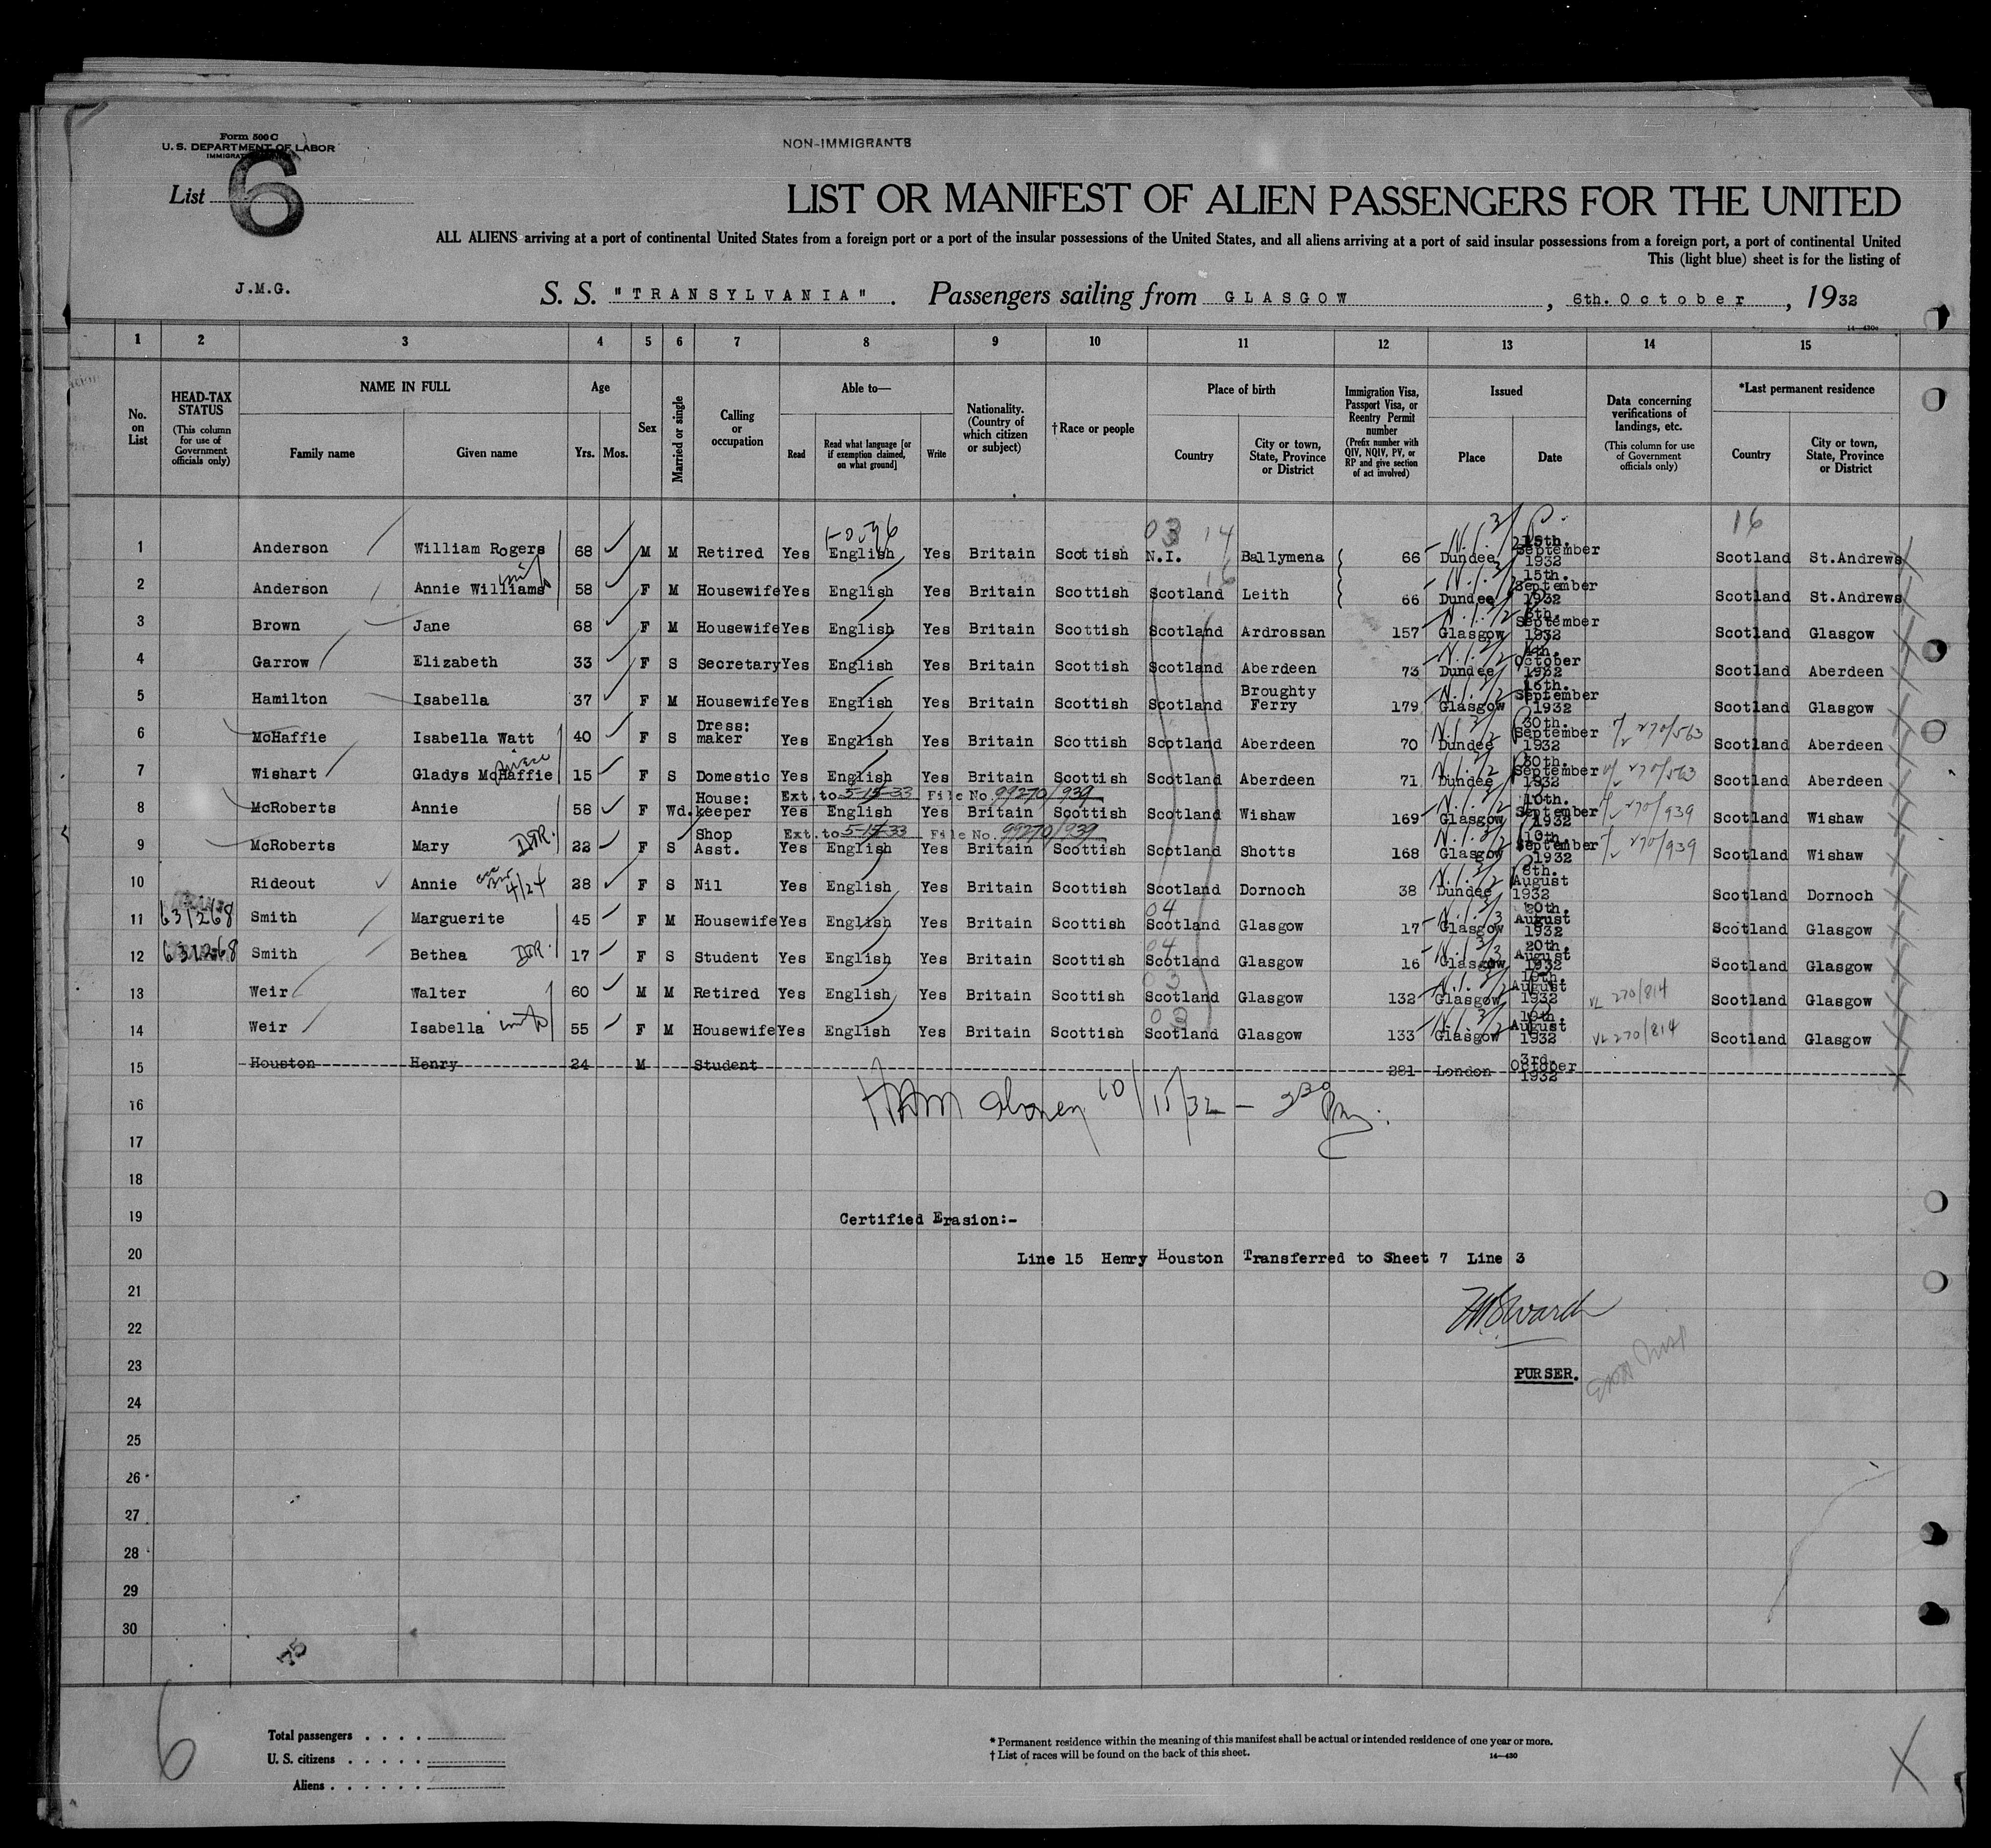 Form 500 C
U. S. DEPARTMENT OF LABOR
NON-IMMIGRANTS
List 6
LIST OR MANIFEST OF ALIEN PASSENGERS FOR THE UNITED
ALL ALIENS arriving at a port of continental United States from a foreign port or a port of the insular possessions of the United States, and all aliens arriving at a port of said insular possessions from a foreign port, a port of continental United
This (light blue) sheet is for the listing of
J.M.G.
S. S. "TRANSYLVANIA". Passengers sailing from GLASGOW, 6th. October, 1932
1 2 3 4 5 6 7 8 9 10 11 12 13 14 15
No. on List
HEAD-TAX STATUS (This column for use of Government officials only)
NAME IN FULL Family name Given name
Age Yrs. Mos.
Sex
Married or single
Calling or occupation
Able to— Read Read what language [or if exemption claimed, on what ground] Write
Nationality. (Country of which citizen or subject)
†Race or people
Place of birth Country City or town, State, Province or District
Immigration Visa, Passport Visa, or Reentry Permit number (Prefix number with QIV, NQIV, PV, or RP and give section of act involved)
Issued Place Date
Data concerning verifications of landings, etc. (This column for use of Government officials only)
*Last permanent residence Country City or town, State, Province or District
03 14 16
1 Anderson William Rogers 68 M M Retired Yes English Yes Britain Scottish N.I. Ballymena 66 Dundee 15th. September 1932 Scotland St.Andrews
2 Anderson Annie Williams 58 F M Housewife Yes English Yes Britain Scottish Scotland Leith 66 Dundee 15th. September 1932 Scotland St.Andrews
3 Brown Jane 68 F M Housewife Yes English Yes Britain Scottish Scotland Ardrossan 157 Glasgow September 1932 Scotland Glasgow
4 Garrow Elizabeth 33 F S Secretary Yes English Yes Britain Scottish Scotland Aberdeen 73 Dundee October 1932 Scotland Aberdeen
5 Hamilton Isabella 37 F M Housewife Yes English Yes Britain Scottish Scotland Broughty Ferry 179 Glasgow 16th. September 1932 Scotland Glasgow
6 McHaffie Isabella Watt 40 F S Dress: maker Yes English Yes Britain Scottish Scotland Aberdeen 70 Dundee 30th. September 1932 270/563 Scotland Aberdeen
7 Wishart Gladys McHaffie niece 15 F S Domestic Yes English Yes Britain Scottish Scotland Aberdeen 71 Dundee 30th. September 1932 270/563 Scotland Aberdeen
Ext. to 5-15-33 File No. 99270/939
8 McRoberts Annie 58 F Wd. House: keeper Yes English Yes Britain Scottish Scotland Wishaw 169 Glasgow 10th. September 1932 270/939 Scotland Wishaw
Ext. to 5-15-33 File No. 99270/939
9 McRoberts Mary DTR. 22 F S Shop Asst. Yes English Yes Britain Scottish Scotland Shotts 168 Glasgow 10th. September 1932 270/939 Scotland Wishaw
10 Rideout Annie 4/24 28 F S Nil Yes English Yes Britain Scottish Scotland Dornoch 38 Dundee 8th. August 1932 Scotland Dornoch
11 631268 Smith Marguerite 45 F M Housewife Yes English Yes Britain Scottish 04 Scotland Glasgow 17 Glasgow 20th. August 1932 Scotland Glasgow
12 631268 Smith Bethea DTR. 17 F S Student Yes English Yes Britain Scottish 04 Scotland Glasgow 16 Glasgow 20th. August 1932 Scotland Glasgow
13 Weir Walter 60 M M Retired Yes English Yes Britain Scottish 03 Scotland Glasgow 132 Glasgow 10th. August 1932 VL 270/814 Scotland Glasgow
14 Weir Isabella wife 55 F M Housewife Yes English Yes Britain Scottish 03 Scotland Glasgow 133 Glasgow 10th. August 1932 VL 270/814 Scotland Glasgow
15 Houston Henry 24 M Student 281 London 3rd. October 1932
16 10/15/32 - 2 30
17
18
19 Certified Erasion:-
20 Line 15 Henry Houston Transferred to Sheet 7 Line 3
21
22
23 PURSER.
24
25
26
27
28
29
30
75
6
Total passengers
U. S. citizens
Aliens
* Permanent residence within the meaning of this manifest shall be actual or intended residence of one year or more.
† List of races will be found on the back of this sheet.
14—430
X